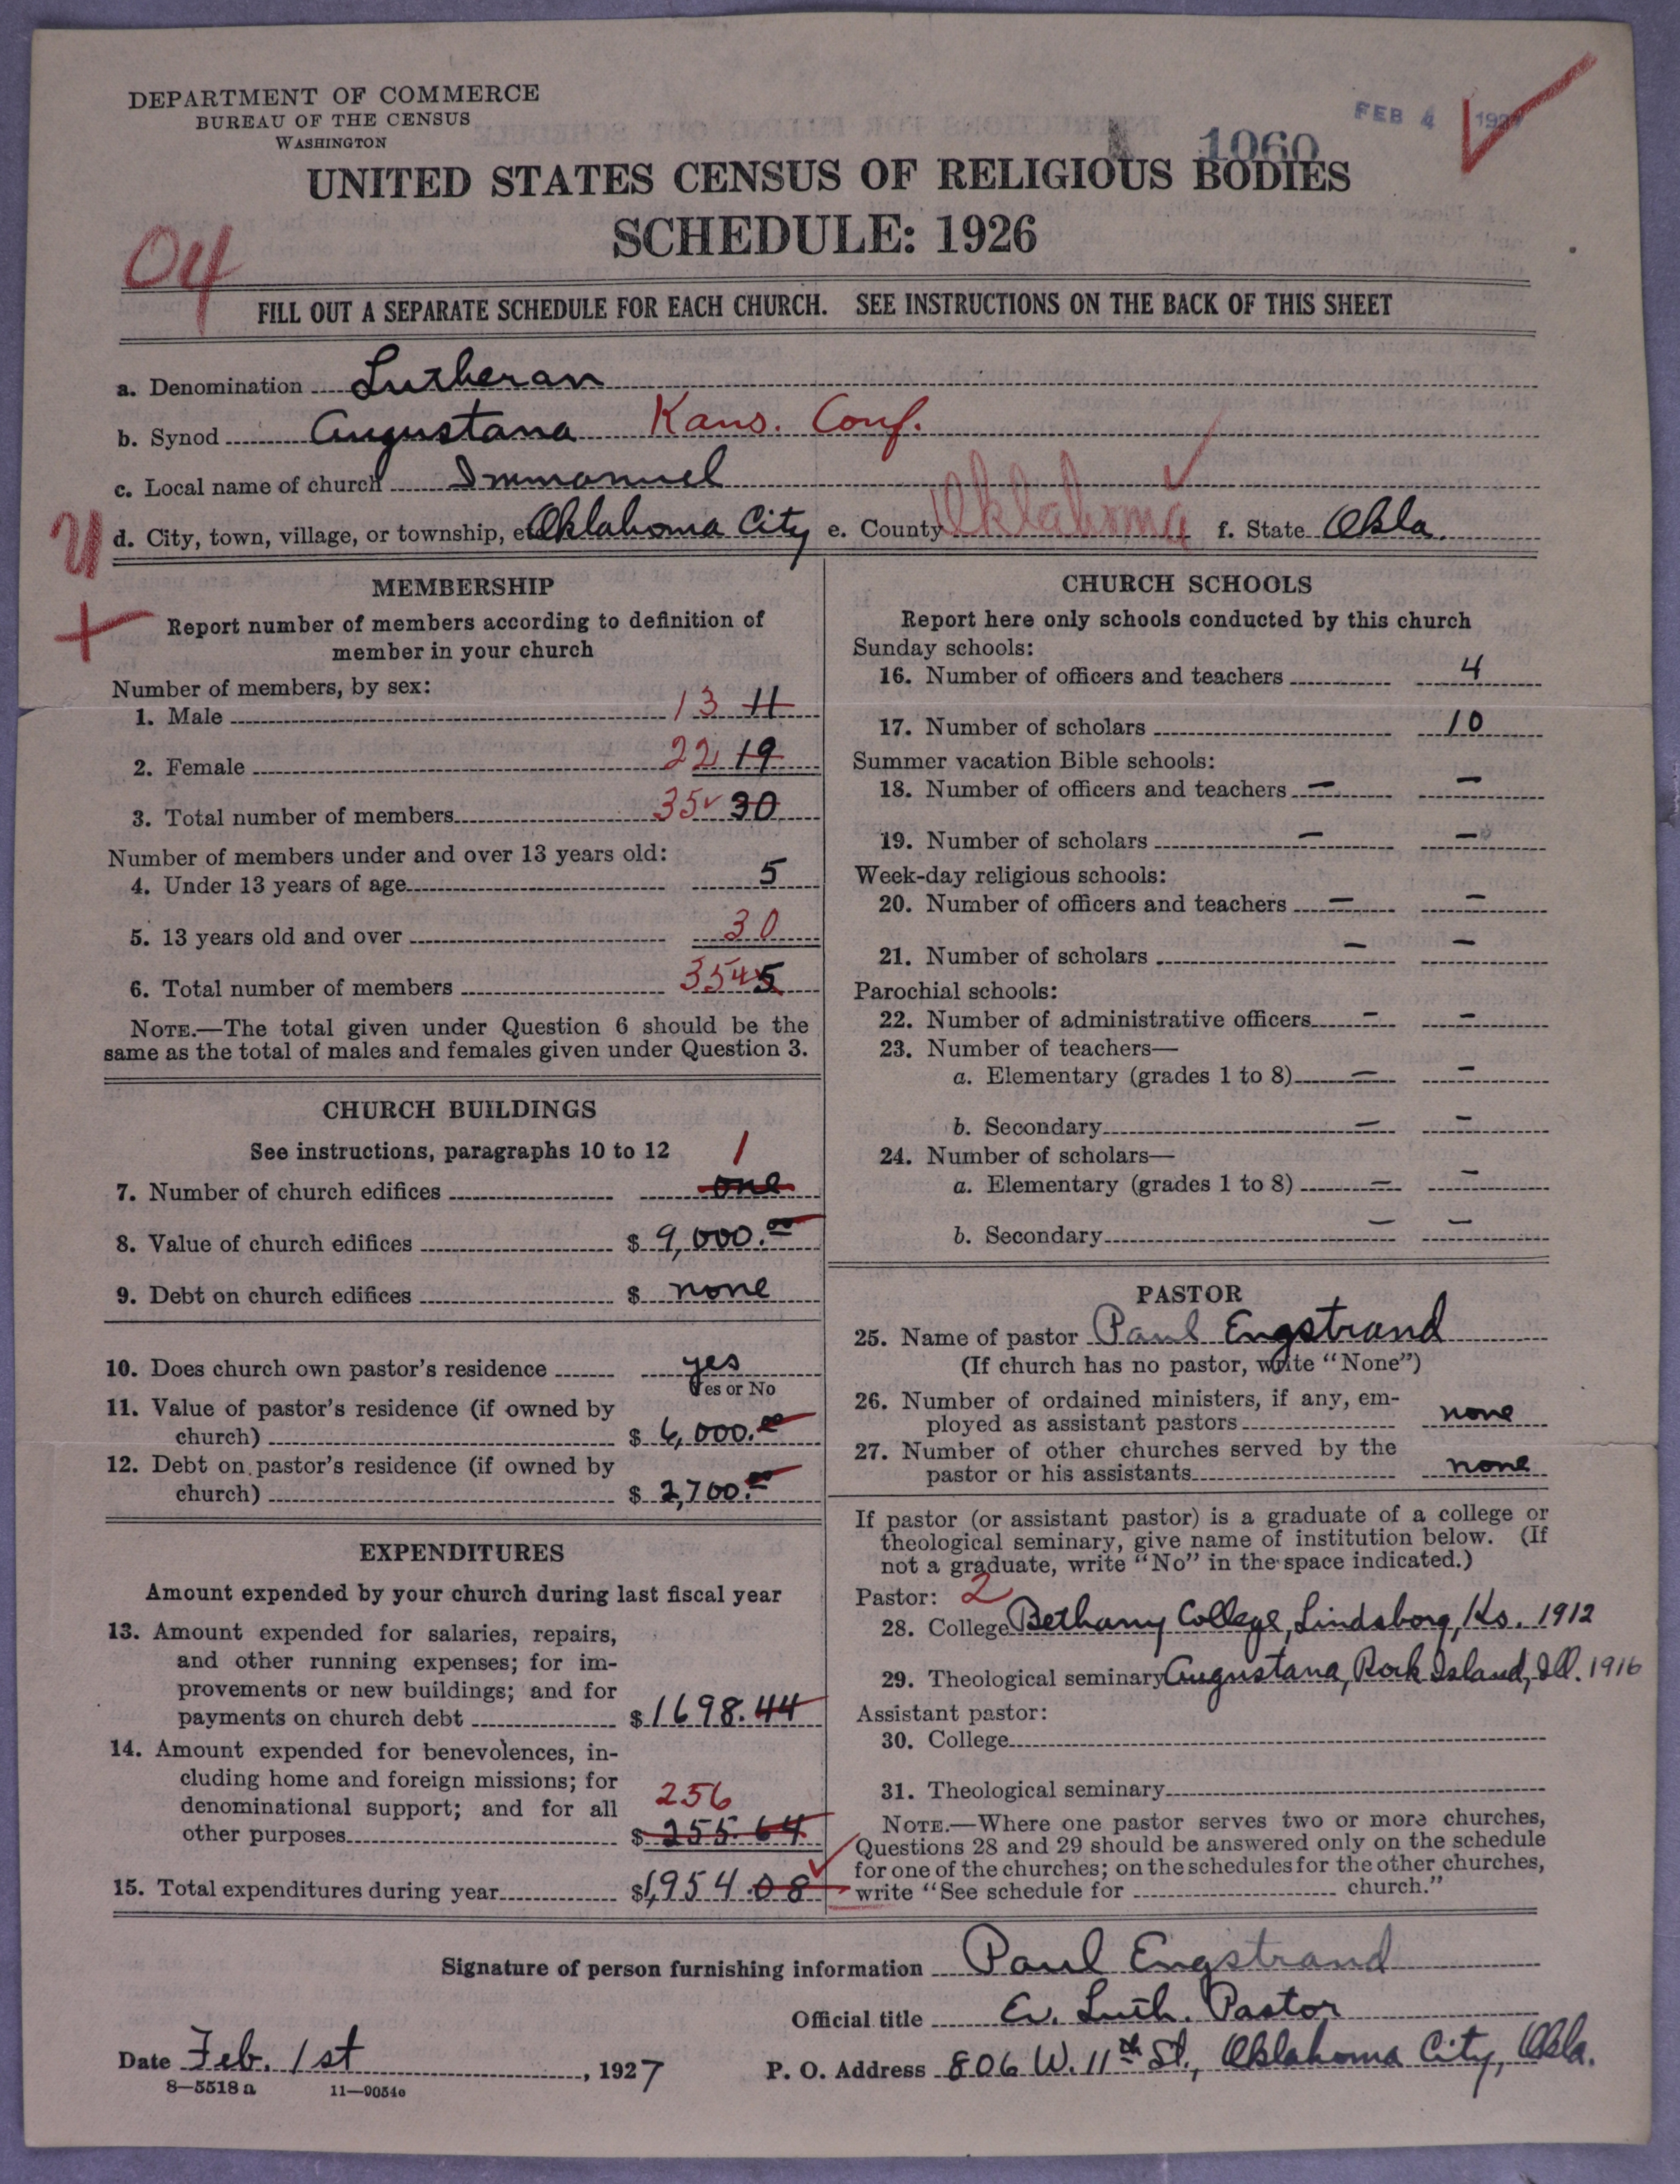 DEPARTMENT OF COMMERCE
BUREAU OF THE CENSUS
WASHINGTON
FEB 4
1060
UNITED STATES CENSUS OF RELIGIOUS BODIES
SCHEDULE: 1926
04
FILL OUT A SEPARATE SCHEDULE FOR EACH CHURCH. SEE INSTRUCTIONS ON THE BACK OF THIS SHEET
a. Denomination Lutheran
b. Synod Augustana Kans. Conf.
c. Local name of church Immanuel
d. City, town, village, or township, Oklahoma City e. County Oklahoma f. State Okla.
MEMBERSHIP
Report number of members according to definition of
member in your church
Number of members, by sex:
1. Male 13 11
2. Female 22 19
3. Total number of members 35 30
Number of members under and over 13 years old:
4. Under 13 years of age 5
5. 13 years old and over 30
6. Total number of members 35 5
NOTE.—The total given under Question 6 should be the
same as the total of males and females given under Question 3.
CHURCH BUILDINGS
See instructions, paragraphs 10 to 12 1
7. Number of church edifices one
8. Value of church edifices $ 9,000.00
9. Debt on church edifices $ none
10. Does church own pastor's residence yes
Yes or No
11. Value of pastor's residence (if owned by
church) $ 6,000.00
12. Debt on pastor's residence (if owned by
church) $ 2,700.00
EXPENDITURES
Amount expended by your church during last fiscal year
13. Amount expended for salaries, repairs,
and other running expenses; for im-
provements or new buildings; and for
payments on church debt $ 1698.44
14. Amount expended for benevolences, in-
cluding home and foreign missions; for
denominational support; and for all 256
other purposes $ 255.64
15. Total expenditures during year $1,954.08
CHURCH SCHOOLS
Report here only schools conducted by this church
Sunday schools:
16. Number of officers and teachers 4
17. Number of scholars 10
Summer vacation Bible schools:
18. Number of officers and teachers — —
19. Number of scholars — —
Week-day religious schools:
20. Number of officers and teachers — —
21. Number of scholars — —
Parochial schools:
22. Number of administrative officers — —
23. Number of teachers—
a. Elementary (grades 1 to 8) — —
b. Secondary — —
24. Number of scholars—
a. Elementary (grades 1 to 8) — —
b. Secondary — —
PASTOR
25. Name of pastor Paul Engstrand
(If church has no pastor, write "None")
26. Number of ordained ministers, if any, em-
ployed as assistant pastors none
27. Number of other churches served by the
pastor or his assistants none
If pastor (or assistant pastor) is a graduate of a college or
theological seminary, give name of institution below. (If
not a graduate, write "No" in the space indicated.)
Pastor: 2
28. College Bethany College, Lindsborg, Ks. 1912
29. Theological seminary Augustana, Rock Island, Ill. 1916
Assistant pastor:
30. College
31. Theological seminary
NOTE.—Where one pastor serves two or more churches,
Questions 28 and 29 should be answered only on the schedule
for one of the churches; on the schedules for the other churches,
write "See schedule for church."
Signature of person furnishing information Paul Engstrand
Official title Ev. Luth. Pastor
Date Feb. 1st, 1927 P. O. Address 806 W. 11th St., Oklahoma City, Okla.
8—5518a 11—9054e